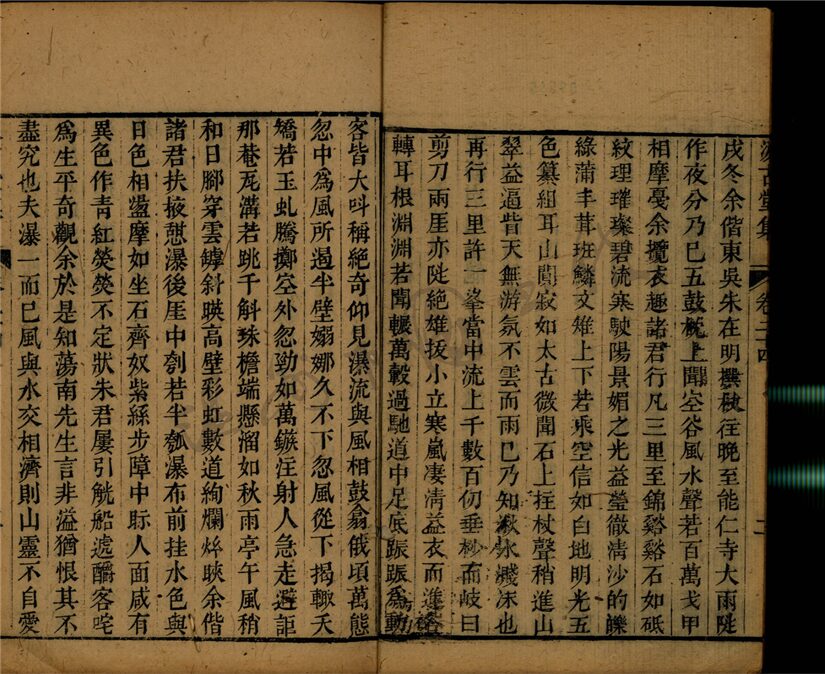 戌冬余偕東吳朱在明撰杖往晚至能仁寺大雨陡
作夜分乃巳五鼓枕上聞空谷風水聲若百萬戈甲
相摩戞余攬衣趣諸君行凡三里至錦谿谿石如砥
紋理璀璨碧流寒駛陽景媚之光益瑩徹淸沙的皪
綠蒲丰茸班鱗文雉上下若乘空信如白地明光五
色纂組耳山聞寂如太古微聞石上拄杖聲稍進山
翠益逼皆天無游氛不雲而雨巳乃知瀑泳濺沫也
再行三里許一峯當中流上千數百仞垂杪而岐曰
剪刀兩厓亦陡絕雄拔小立寒嵐凄淸益衣而進
轉耳根淵淵若聞輾萬轂過馳道中足底踬踬爲動
客皆大呌稱絕奇仰見瀑流與風相鼓翕俄頃萬態
忽中爲風所遏半壁嫋娜久不下忽風從下揭輙夭
矯若玉虬騰擲空外忽勁如萬鏃注射人急走避詎
那菴瓦溝若跳千斛珠檐端懸溜如秋雨亭午風稍
和日腳穿雲罅斜暎高壁彩虹數道絢爛焠映余偕
諸君扶掖憩瀑後厓中刳若半瓠瀑布前挂水色與
日色相盪摩如坐石齊奴紫絲步障中眎人面咸有
異色作靑紅熒熒不定狀朱君屢引觥船遞酹客咤
爲生平奇觀余於是知蕩南先生言非溢猶恨其不
盡究也夫瀑一而巳風與水交相濟則山靈不自愛
卷二十四
二